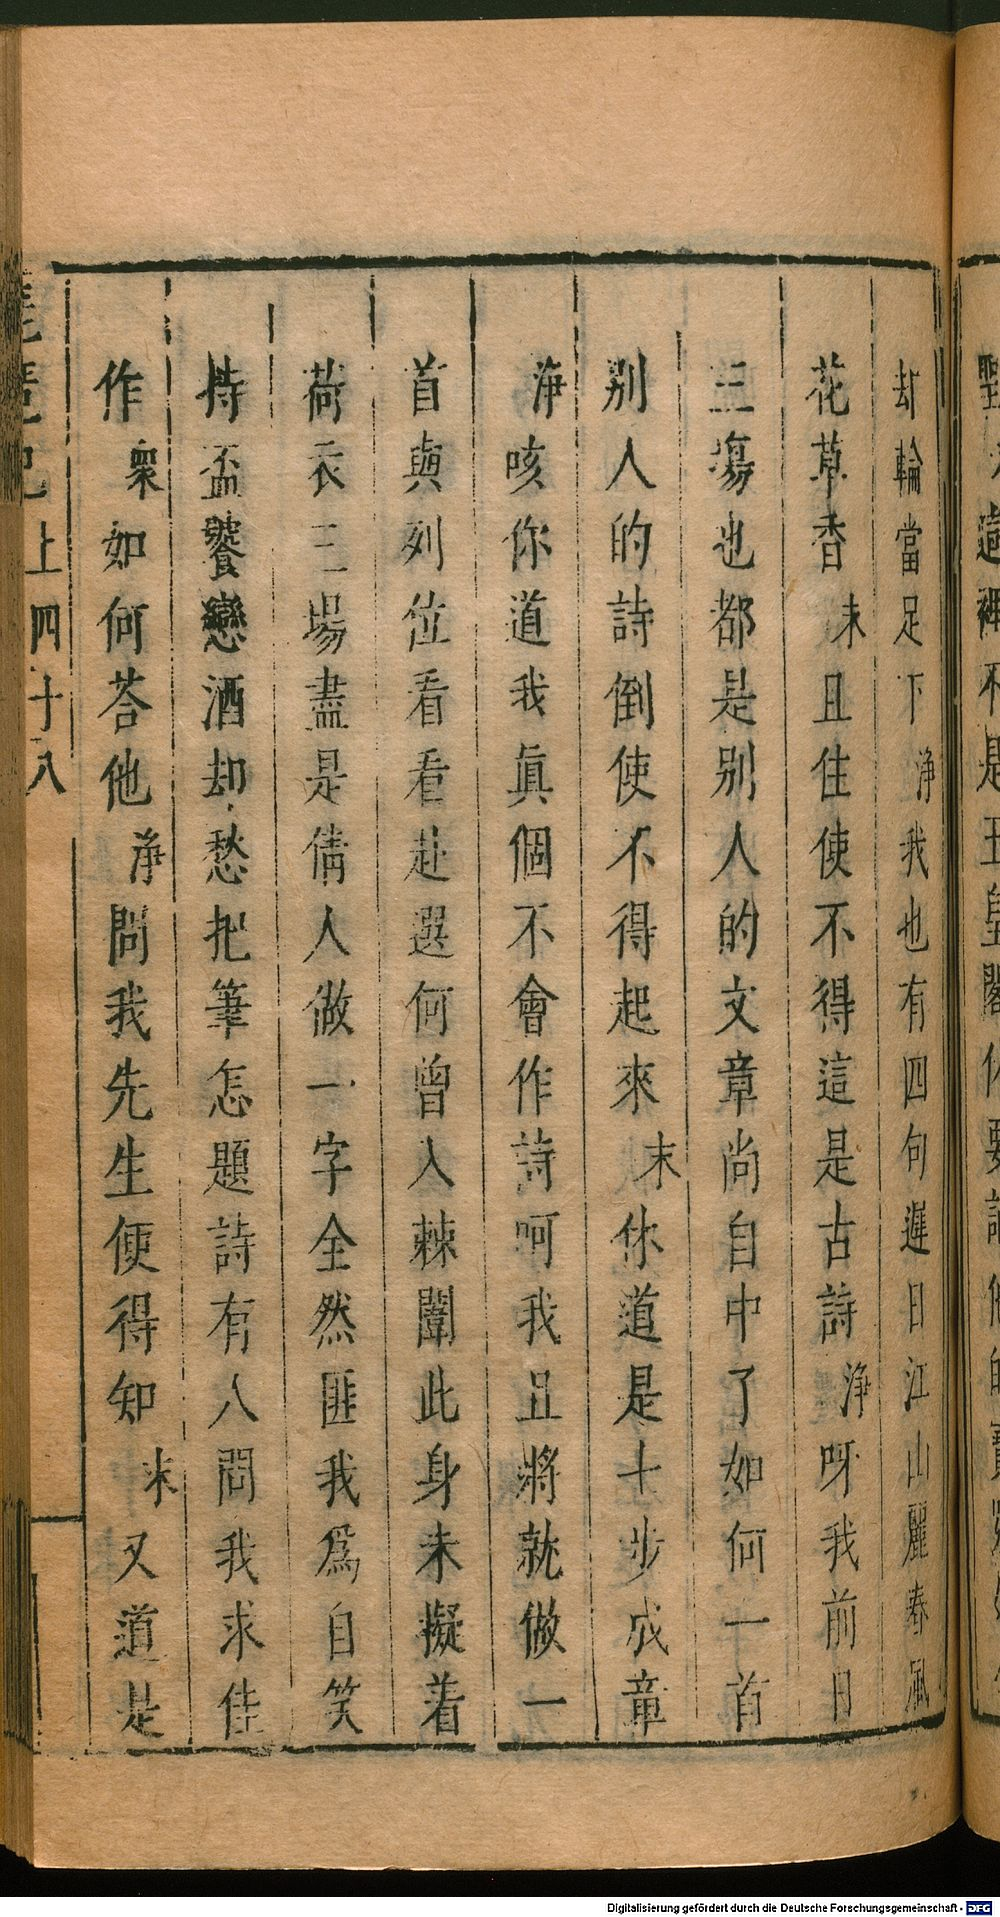 却輪當足下淨我也有四句遲日江山麗春風
花草香末且住使不得這是古詩淨呀我前日
三塲也都是别人的文章尚自中了如何一首
别人的詩倒使不得起來末你道是七步成章
淨咳你道我眞個不會作詩呵我且將就做一
首與列位看看赴選何曾入棘闈此身未擬着
荷衣三塲盡是倩人做一字全然匪我爲自笑
持盃饕戀酒却愁把筆怎題詩有人問我求佳
作衆如何荅他淨問我先生便得知末又道是
琵琶記上四十八
Digitalisierung gefördert durch die Deutsche Forschungsgemeinschaft - DFG